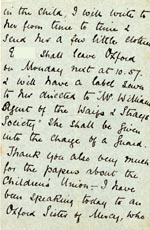 in the child. I will write to
her from time to time &
send her a few little clothes
E shall leave Oxford
on Monday next at 10.57.
& will have a label sewn
to her directed to "Mr Williams
Agent of the Waifs & Strays
Society" She shall be given
into the charge of a Guard.
Thank you also very much
for the papers about the
Children's Union – I have
been speaking today to an
Oxford Sister of Mercy, who